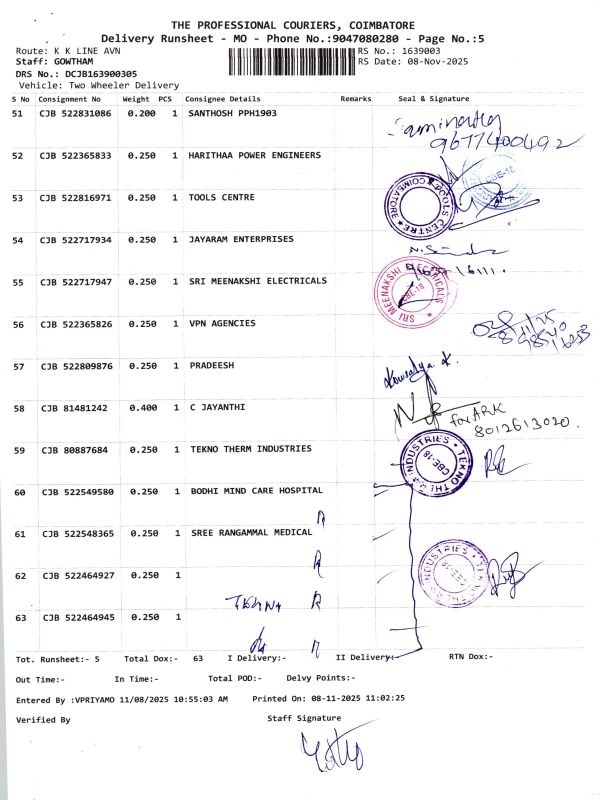 THE PROFESSIONAL COURIERS, COIMBATORE
Delivery Runsheet - MO - Phone No.:9047080280 - Page No.:5
Route: K K LINE AVN RS No.: 1639003
Staff: GOWTHAM RS Date: 08-Nov-2025
DRS No.: DCJB163900305
Vehicle: Two Wheeler Delivery
S No Consignment No Weight PCS Consignee Details Remarks Seal & Signature
51 CJB 522831086 0.200 1 SANTHOSH PPH1903
9677400492
52 CJB 522365833 0.250 1 HARITHAA POWER ENGINEERS
CBE-18
53 CJB 522816971 0.250 1 TOOLS CENTRE
TOOLS CENTRE ★ COIMBATORE ★
54 CJB 522717934 0.250 1 JAYARAM ENTERPRISES
55 CJB 522717947 0.250 1 SRI MEENAKSHI ELECTRICALS
SRI MEENAKSHI ELECTRICALS ★ CBE-18
56 CJB 522365826 0.250 1 VPN AGENCIES
8/11/25
57 CJB 522809876 0.250 1 PRADEESH
Kowsalya K.
58 CJB 81481242 0.400 1 C JAYANTHI
for ARK
8012613020.
59 CJB 80887684 0.250 1 TEKNO THERM INDUSTRIES
TEKNO THERM INDUSTRIES ★ CBE-18
60 CJB 522549580 0.250 1 BODHI MIND CARE HOSPITAL
61 CJB 522548365 0.250 1 SREE RANGAMMAL MEDICAL
62 CJB 522464927 0.250 1
TEKNO THERM INDUSTRIES CBE-18
63 CJB 522464945 0.250 1
Tot. Runsheet:- 5 Total Dox:- 63 I Delivery:- II Delivery:- RTN Dox:-
Out Time:- In Time:- Total POD:- Delvy Points:-
Entered By :VPRIYAMO 11/08/2025 10:55:03 AM Printed On: 08-11-2025 11:02:25
Verified By Staff Signature